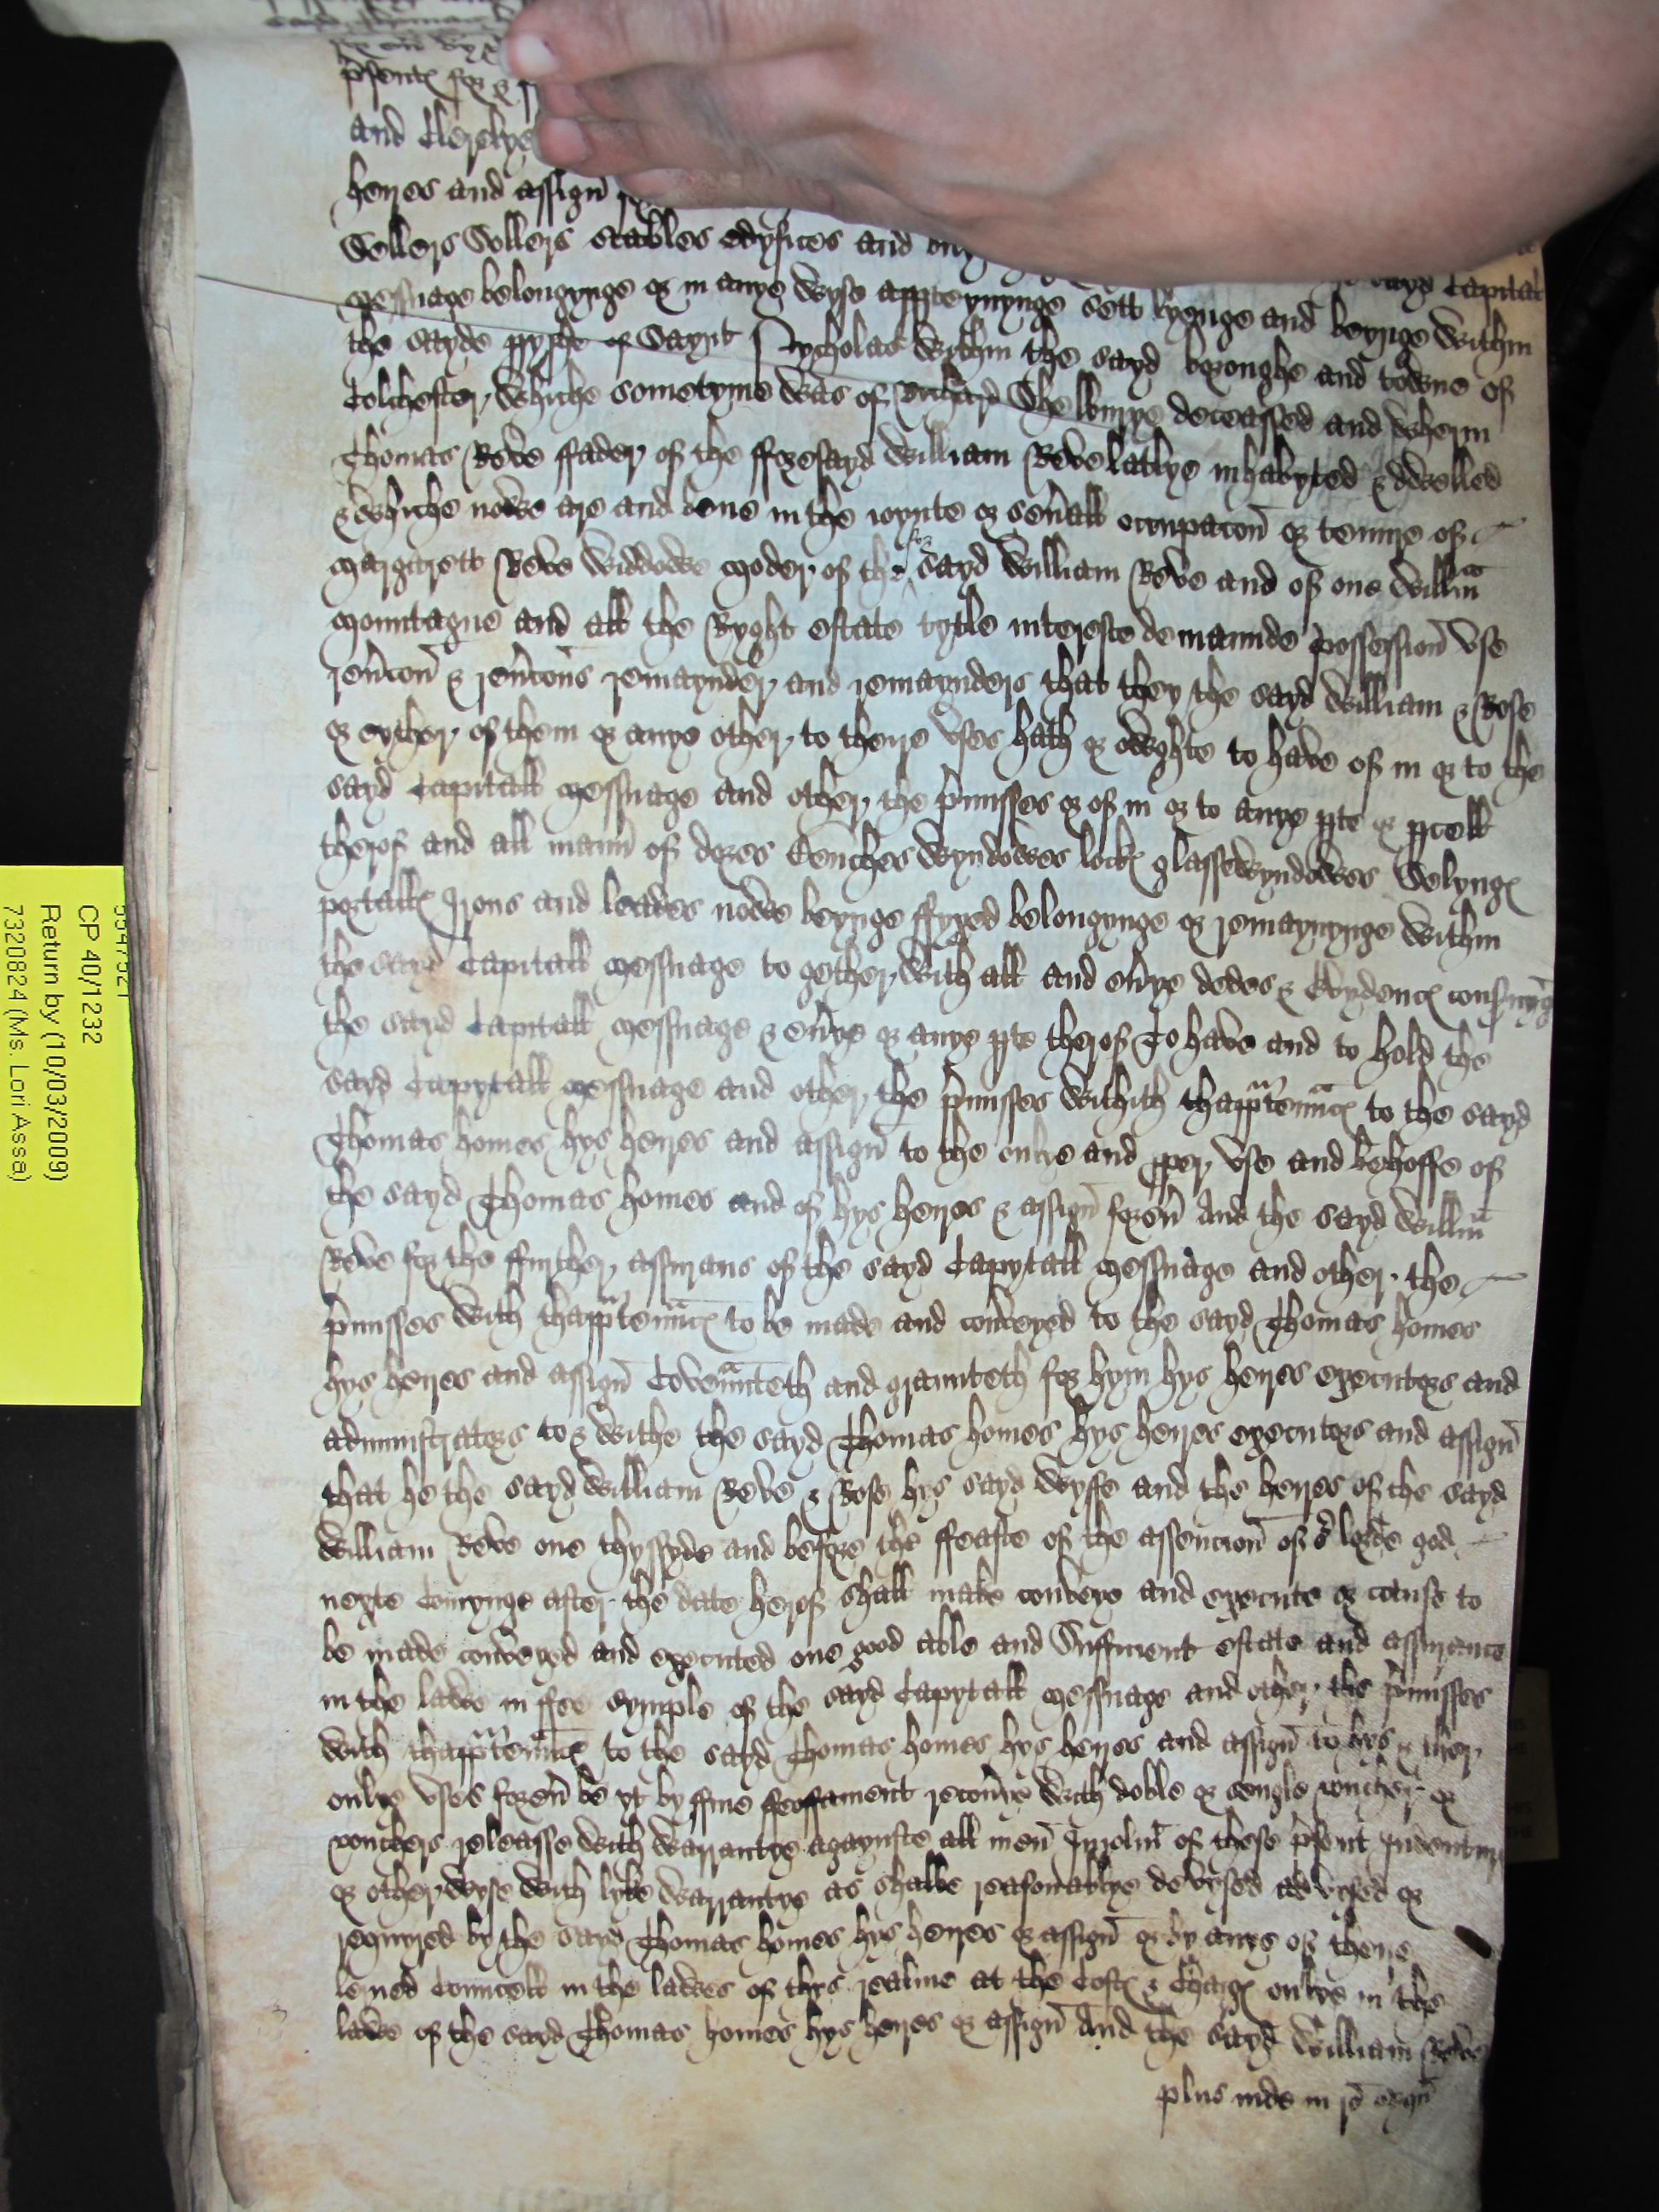 p'sent
and Clerelye
heyres and assign
Sellers Sollers stables edyfices and
sayd Capitall
messuage belongynge or in anye wyse apperteynynge sett lyenge and beynge within
the sayde pyshe of Saynt Nycholas within the sayd boroughe and towne of
Colchester, whiche sometyme was of deceassed and wherin
Thomas Reve ffader of the fforesayd William Reve latlye inhabyted & dwelled
& whiche nowe are and bene in the ioynte or sev'all occupacon or tenure of
Margarett Reve widdowe moder of the for sayd William Reve and of one Willm
Mountague and all the Ryght estate tytle intereste demaunde possession vse
rev'con & rev'cons remaynder and remaynders that they the sayd William & Rose
or eyther of them or anye other to theyre vses hath or owghte to have of in or to the
sayd Capitall messuage and other the p'misses or of in or to anye pte or pcell
therof and all mann' of dores Benches wyndowes lock glassewyndowes Selyng
portall Irons and leades nowe beynge ffyxed belongynge or remaynynge within
the sayd Capitall messuage to gether with all and ev'ye dedes & Evydenc
the sayd Capitall messuage & ev'ye or anye pte therof To have and to hold the
sayd Capytall messuage and other the p'misses withith thapp'tennc to the sayd
Thomas homes hys heyres and assign to the onlye and pper vse and behoffe of
the sayd Thomas homes and of hys heyres & assign forev' And the sayd Willm
Reve for the ffurther assurans of the sayd Capytall messuage and other the
p'misses with thapp'tennc to be made and conveyed to the sayd Thomas homes
hys heyres and assign Coven'nteth and graunteth for hym hys heyres executors and
administrators to & withe the sayd Thomas homes hys heyres executors and assign
that he the sayd William Reve & Rose hys sayd wyffe and the heyres of the sayd
William Reve one thyssyde and before the ffeaste of the assencion of o' lorde god
nexte Comynge after the date herof shall make conveye and execute or cause to
be made conveyed and executed one good able and Sufficient estate and assurance
in the lawe in ffee symple of the sayd Capytall messuage and other the p'misses
with thapp'tennc to the sayd Thomas homes hys heyres and assign to hys & ther
onlye vses forev' be yt by ffine feoffament recov'ye with doble or sengle voucher or
vouchers releasse with warrantye agaynste all men Inrolmt of these p'sent Indentur
or other wyse with lyke warrantye as shalbe reasonablye devysed advysed or
requyred by the sayd Thomas homes hys heyres or assign or by anye of theyre
lerned Councell in the lawes of thys realme at the Cost & Charg onlye in the
lawe of the sayd Thomas homes hys heyres or assign And the sayd William Reve
plus inde in
CP 40/1232
Return by (10/03/2009)
7320824 (Ms. Lori Assa)